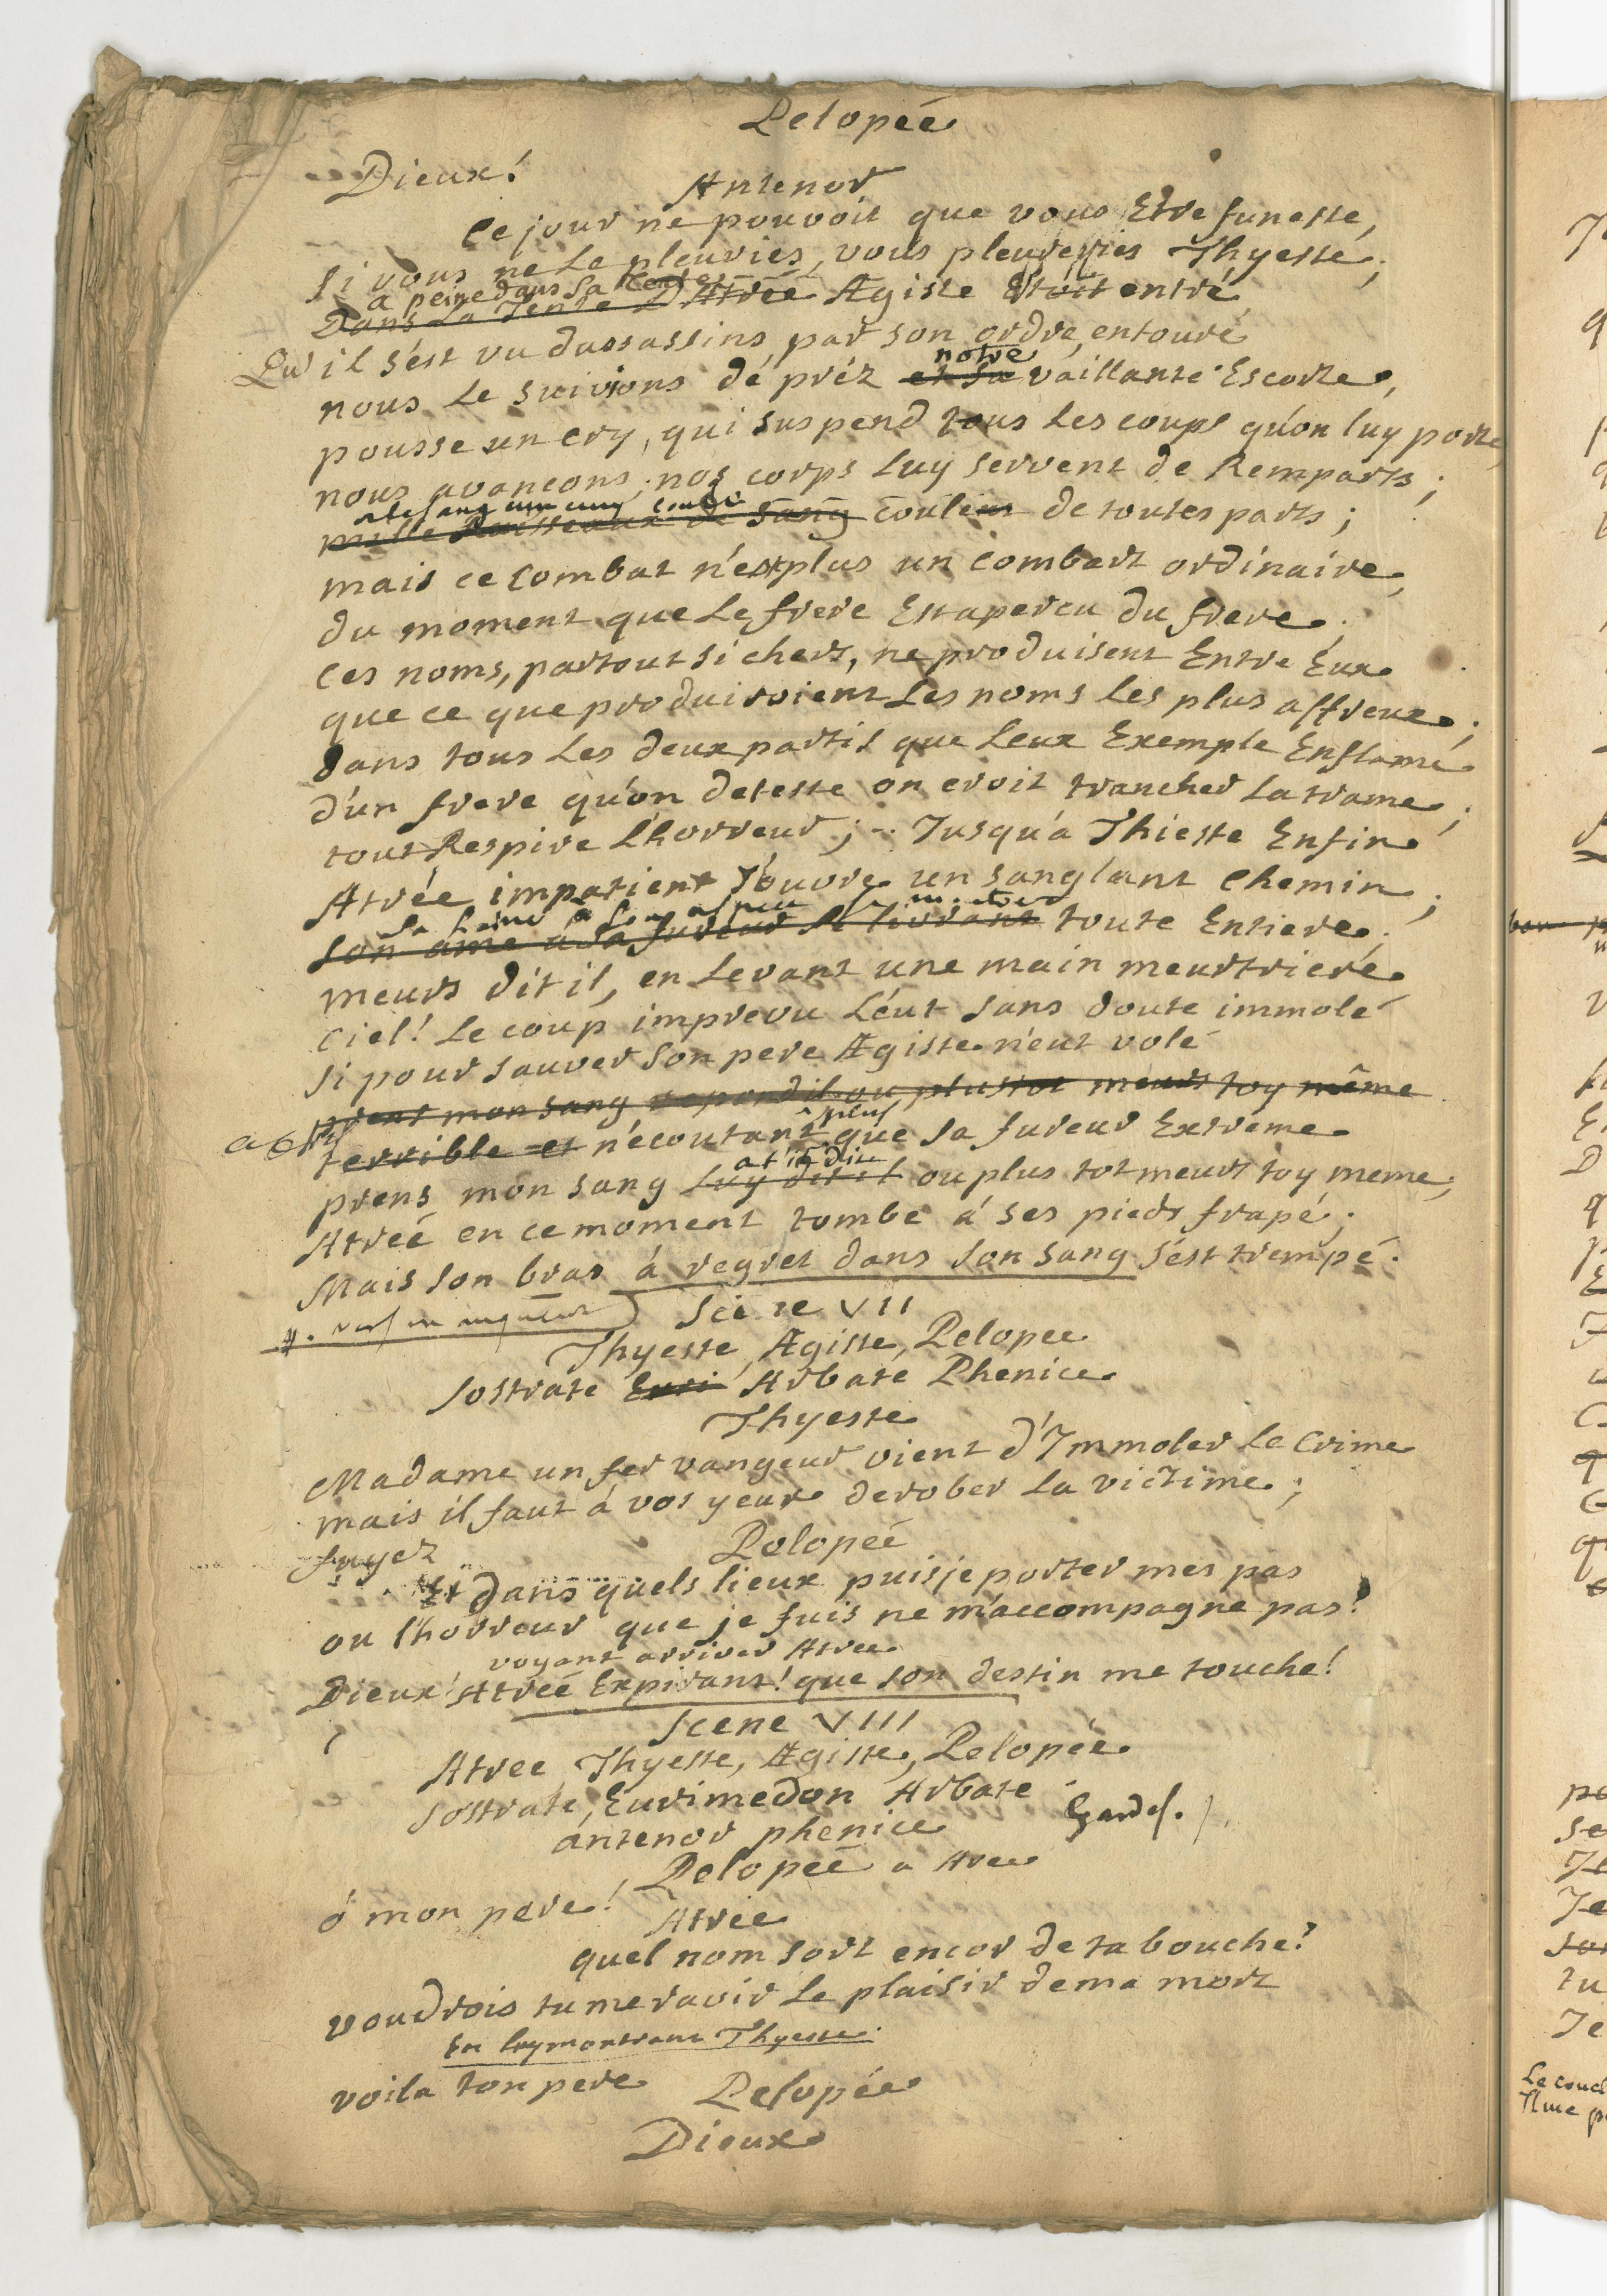 Pelopeé
Dieux!
Antenor
Ce jour ne pouvoit que vous Etre funeste,
Si vous ne Le pleuries, vous pleureries Thyeste;
a peine dans sa tente
Dans La Tente D'Atrée Ægiste Etoit entré
Qu'il s'est vu dassassins par son ordre entouré
notre
nous Le suivions dé préz et sa vaillante Escorte,
pousse un cry, qui suspend tous Les coups qu'on luy porte,
nous avancons, nos corps Luy servent de Remparts;
mille Ruisseaux de sang coulent de toutes parts;
mais ce combat n'est plus un combart ordinaire,
du moment que Le frere Est apercu du frere.
Ces noms, partout si chers, ne produisent Entre Eux
que ce que produiroient Les noms Les plus affreux;
dans tous Les deux partis que Leur Exemple Enflame
d'un frere qu'on deteste on croit trancher La trame;
tout Respire L'horreur; .. Jusqu'a Thieste Enfin
Atrée impatient s'ouvre un sanglant Chemin;
Sa haine à
son ame à sa fureur se livrant toute Entiere;
meurs dit il, en Levant une main meurtriere
Ciel! Le coup imprevu L'eut sans doute immolé
Si pour sauver son pere Ægiste n'eut volé
prens mon sang repondil ou plustot meurs toy même
plus
terrible et n'ecoutant que sa fureur Extreme
at'il dit
prens mon sang Luy dit il ou plus tot meurs toy meme;
Atreé en ce moment tombe á ses pieds frapé;
Mais son bras á regret dans son sang s'est trempé.
Scène VII
Thyeste, Ægiste, Pelopee
Sostrate Euri Arbate Phenice
Thyeste
Madame un fer vangeur vient d'Immoler Le Crime
mais il faut á vos yeux derober La victime;
fuyez
Pelopeé
Et dans quels lieux puisje porter mes pas
ou l'horreur que je fuis ne m'accompagne pas?
voyant arriver Atree
Dieux! Atreé Expirant! que son destin me touche!
Scene VIII
Atree Thyeste, Ægiste, Pelopée
Sostrate, Eurimedon Arbate
antenor phenice Gardes.
Pelopeé a Atree
ó mon pere!
Atree
quel nom sort encor de ta bouche?
voudrois tu me ravir Le plaisir de ma mort
En luy montrant Thyeste
voila ton pere
Pelopée
Dieux